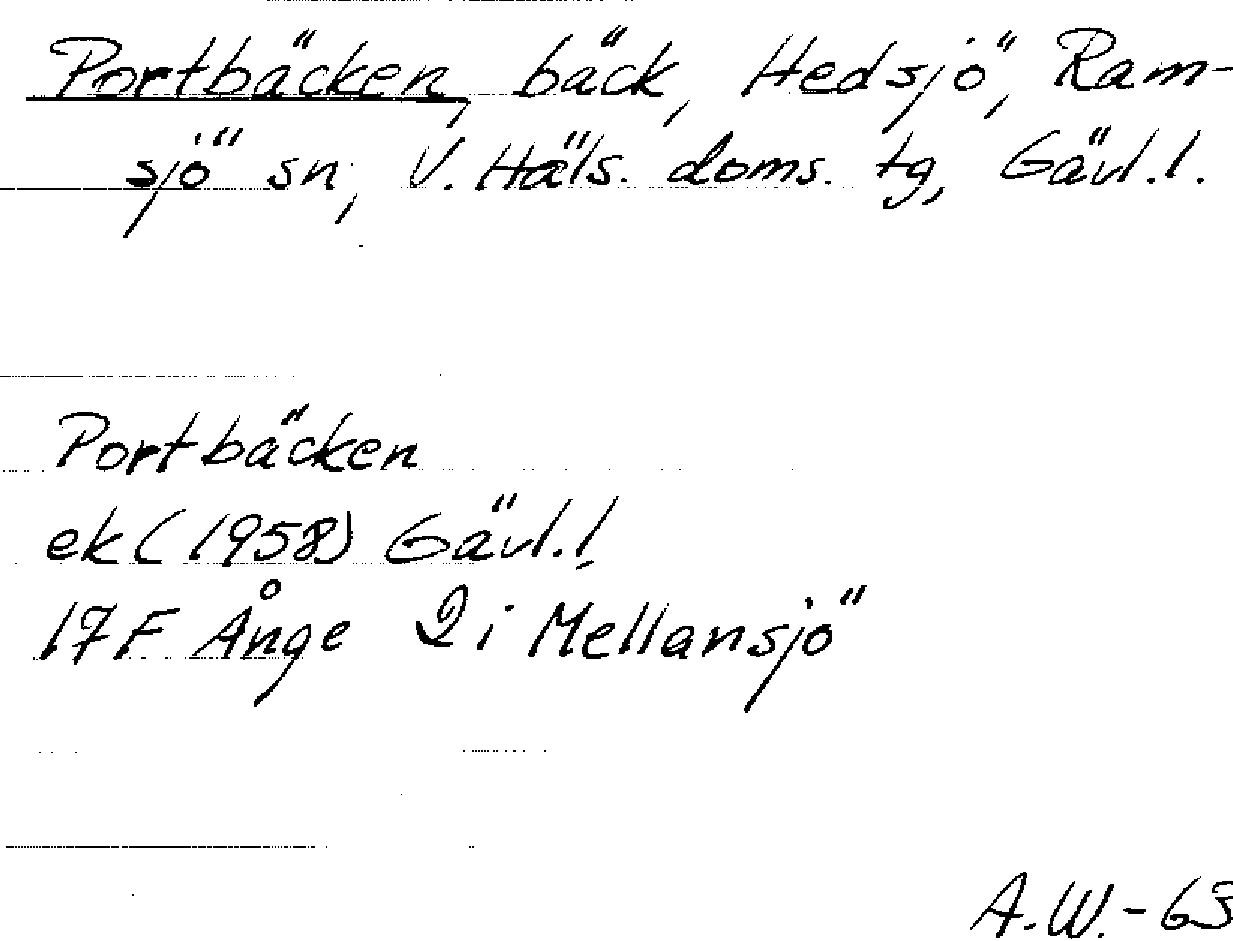 Portbäcken, bäck, Hedsjö, Ram-
sjö sn, V. Häls. doms. tg, Gävl.l.
Portbäcken
ek (1958) Gävl.l.
17F Ånge 2i Mellansjö
A.W.-63